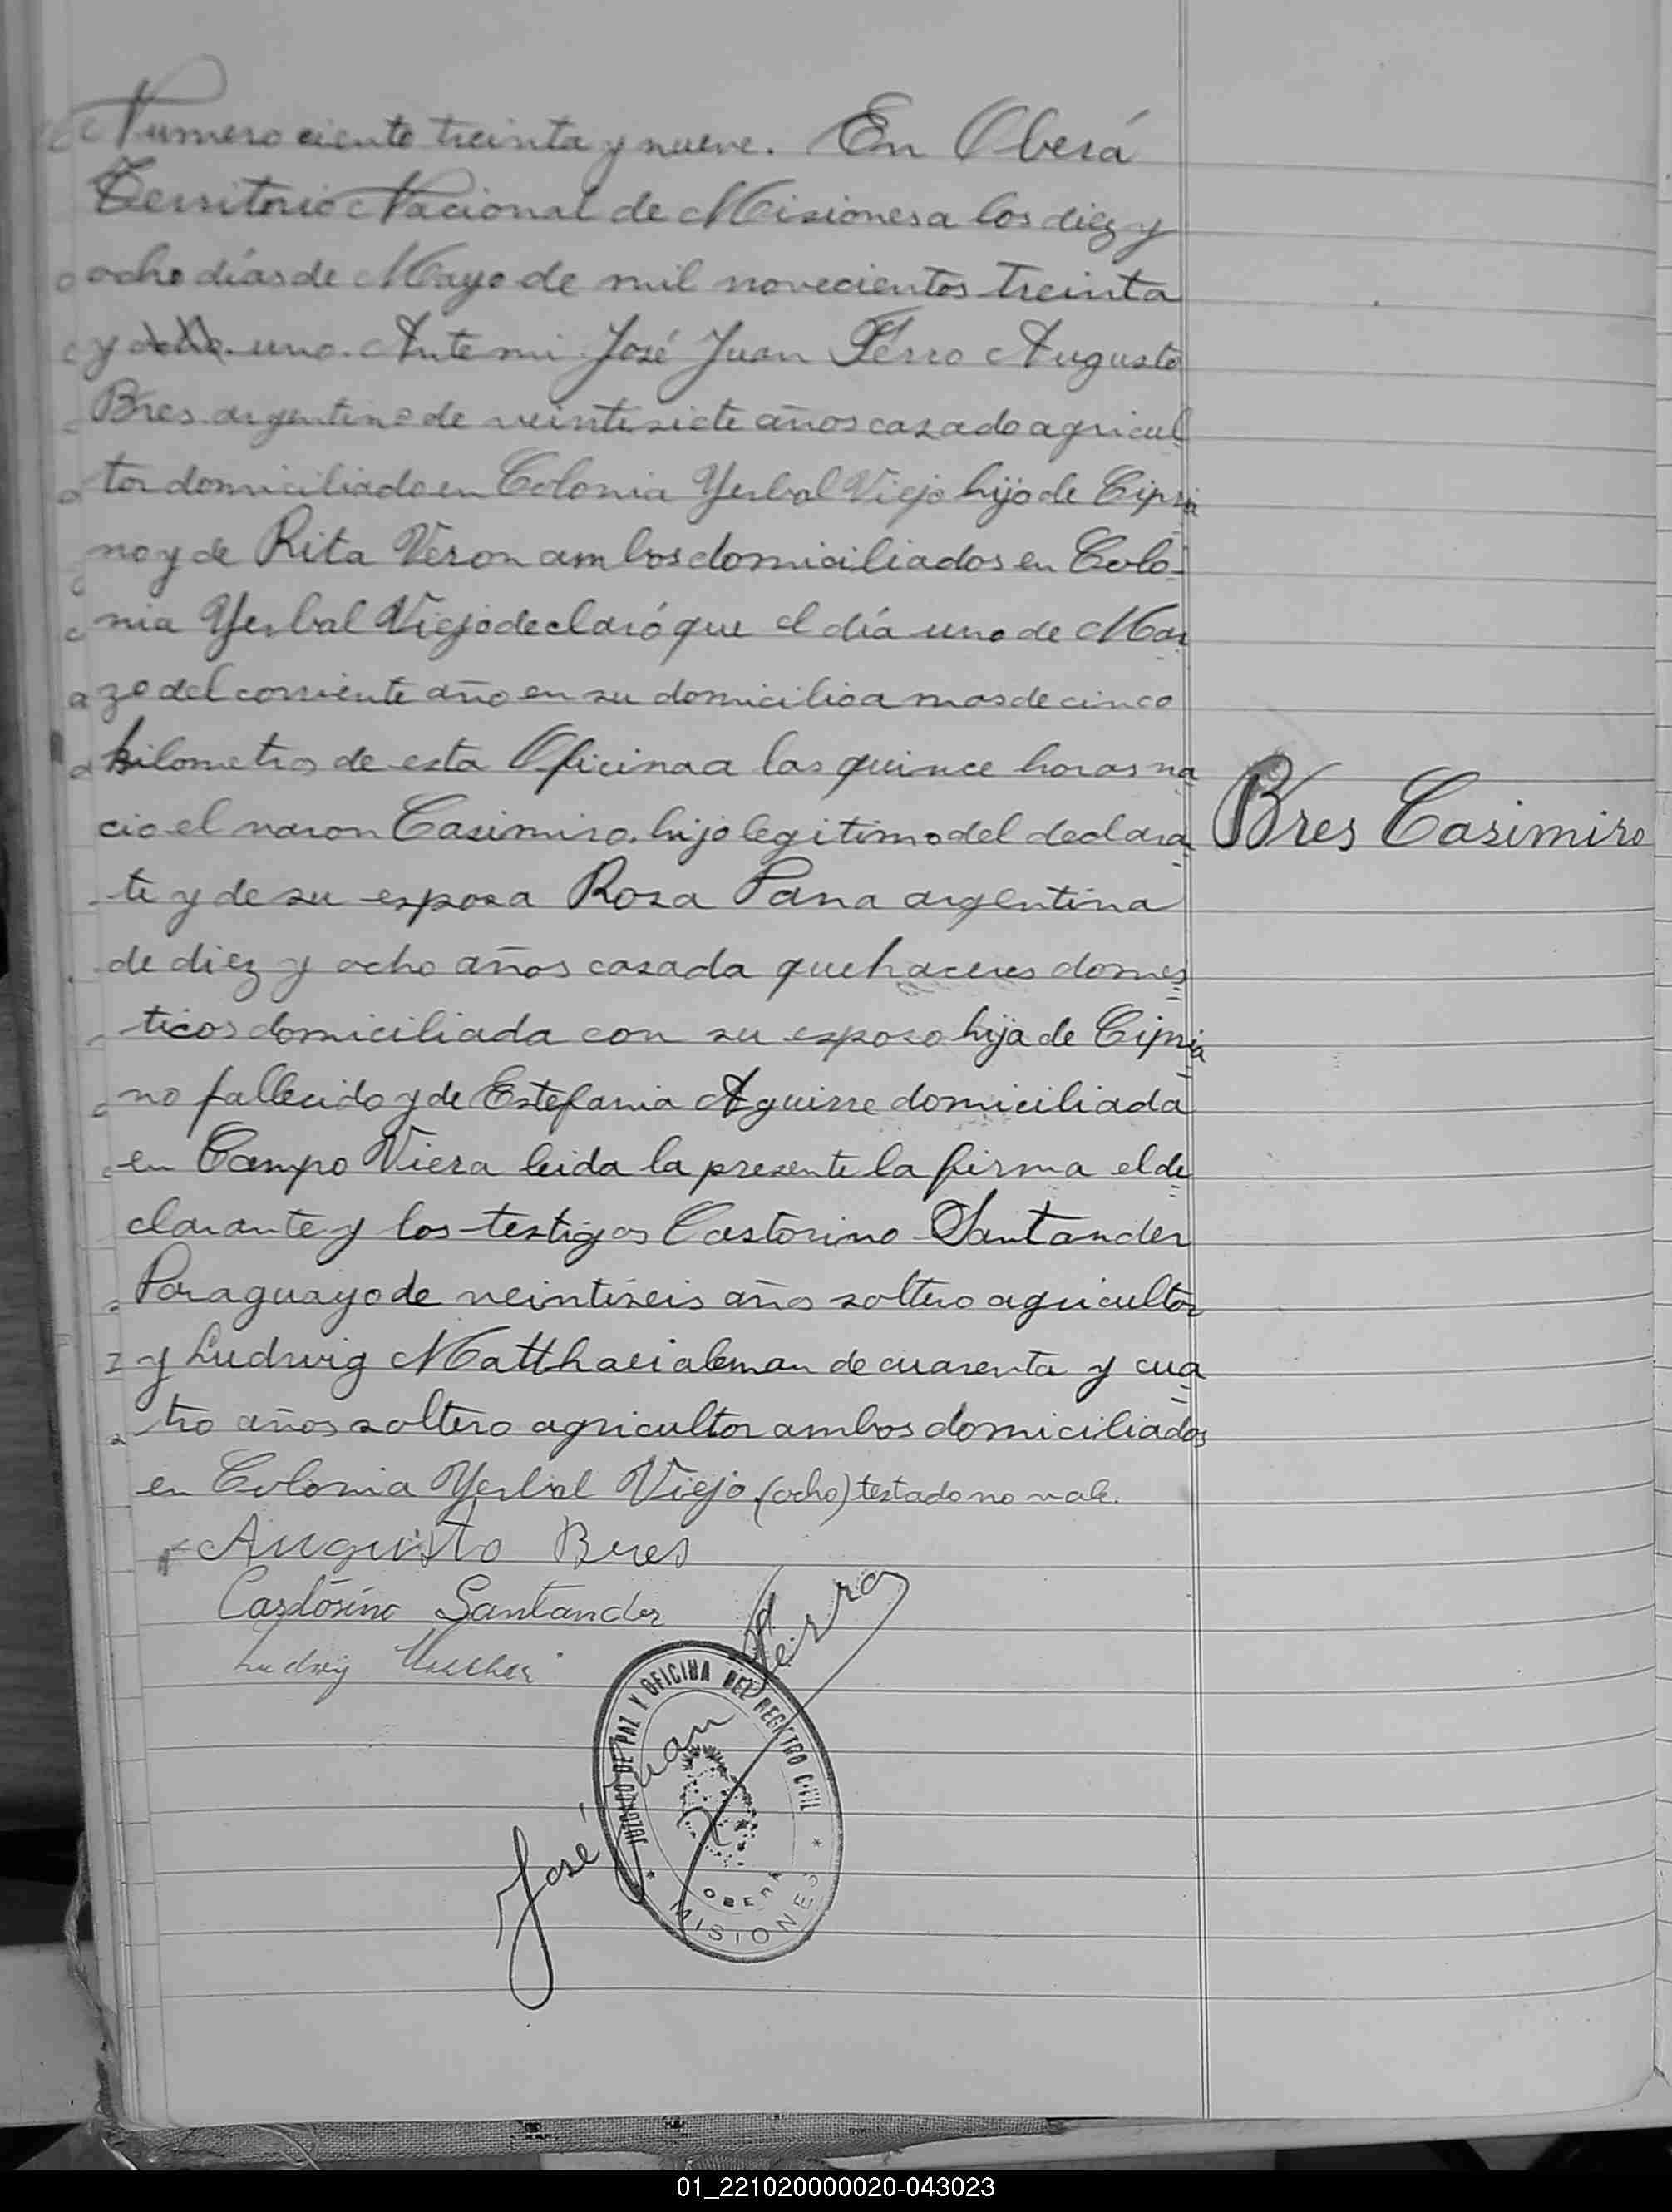 Numero ciento treinta y nueve. En Oberá
Territorio Nacional de Misiones a los diez y
ocho días de Mayo de mil novecientos treinta
y ocho. uno. Ante mi José Juan Ferro Augusto
Bres argentino de veintisiete años casado agricul
tor domiciliado en Colonia Yerbal Viejo hijo de Cipria
no y de Rita Veron ambos domiciliados en Colo-
nia Yerbal Viejo declaró que el día uno de Mar
zo del corriente año en su domicilio a mas de cinco
kilometros de esta Oficina a las quince horas na
cio el varon Casimiro, hijo legitimo del declara
te y de su esposa Rosa Pana argentina
de diez y ocho años casada quehaceres domes
ticos domiciliada con su esposo hija de Cipria
no fallecido y de Estefania Aguirre domiciliada
en Campo Viera leida la presente la firma el de
clarante y los testigos Castorino Santander
Paraguayo de veintiseis años soltero agricultor
y Ludwig Matthaei aleman de cuarenta y cua
tro años soltero agricultor ambos domiciliados
en Colonia Yerbal Viejo. (ocho) testado no vale.
Bres Casimiro
Augusto Bres
Castorino Santander
Ludwig
José Juan Ferro
JUZGADO DE PAZ Y OFICINA DEL REGISTRO CIVIL
OBERA
MISIONES
01_221020000020-043023